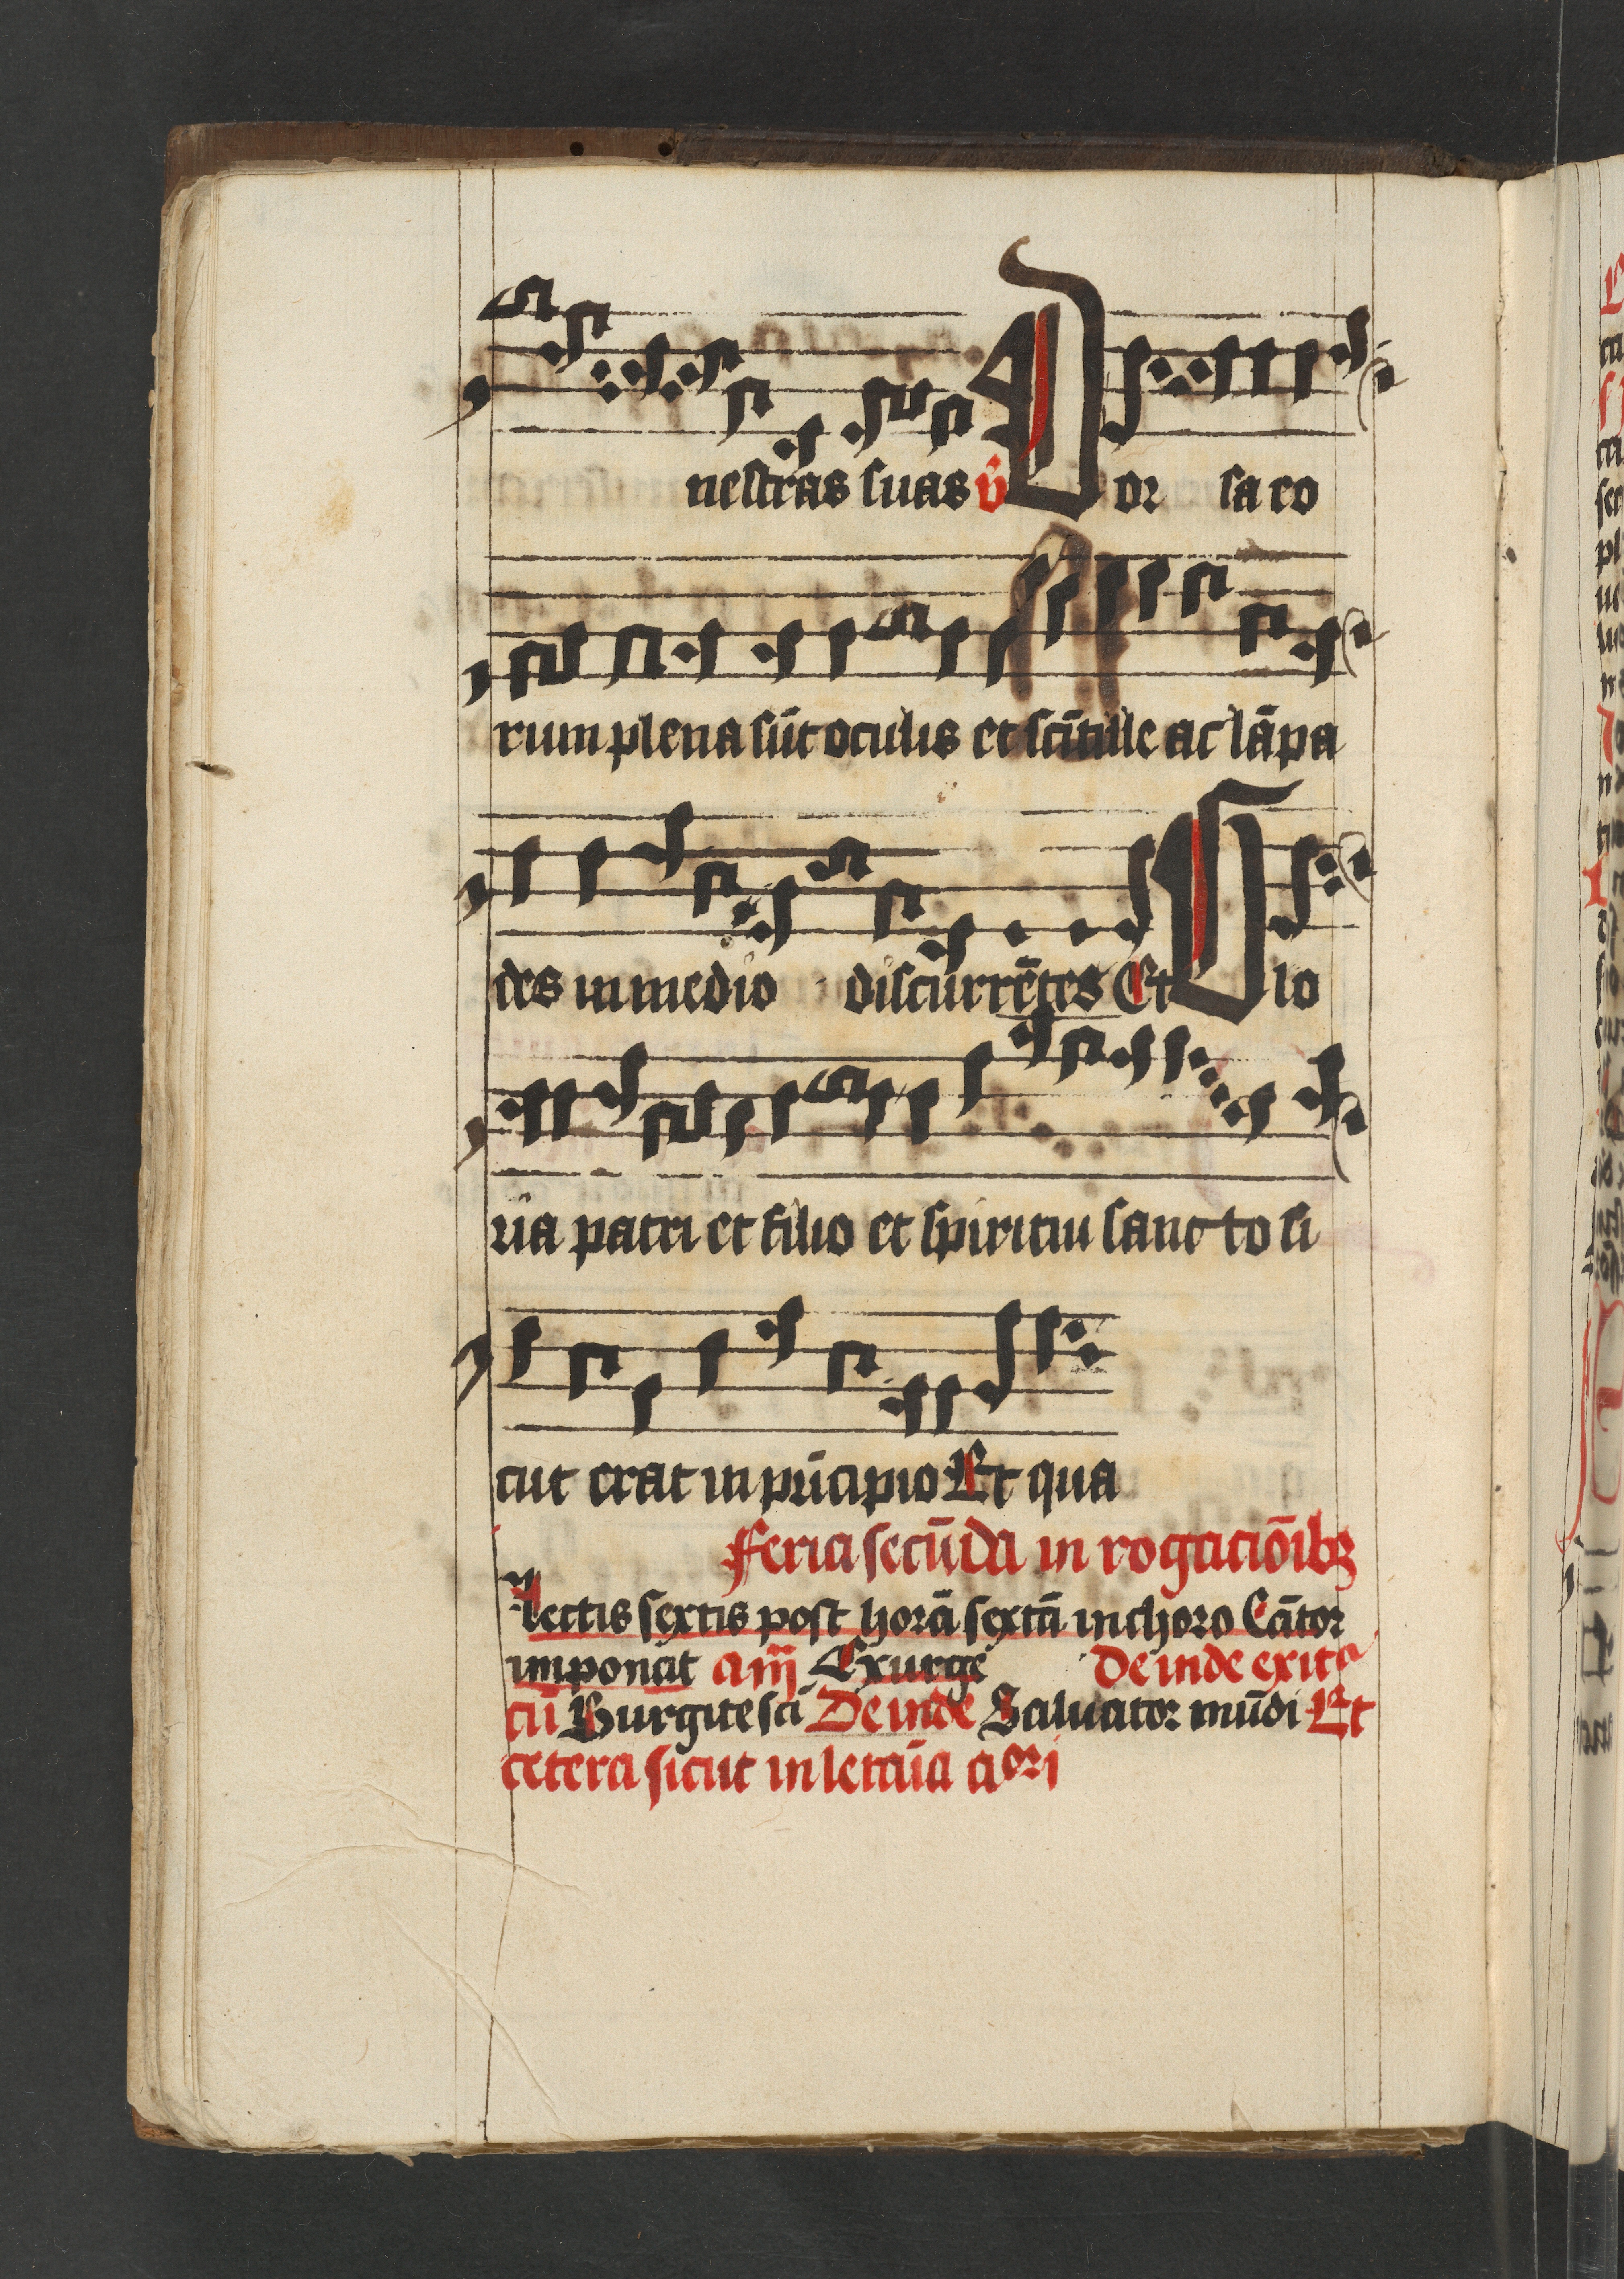 nestras suas v̄ Dor sa eo
rum plena sūt oculis et scītille ac lāpa
des in medio discurrētes Et Glo
ria patri et filio et spiritui sancto si
cut erat in pͥncipio Et qua
Feria secūda in rogaciōibꝫ
lectis sextis post horā sextā in choro Cātor
imponat Exurge Deinde exitᵃ
cū Surgite scī Deinde Saluator mūdi Et
cetera sicut in letaīa